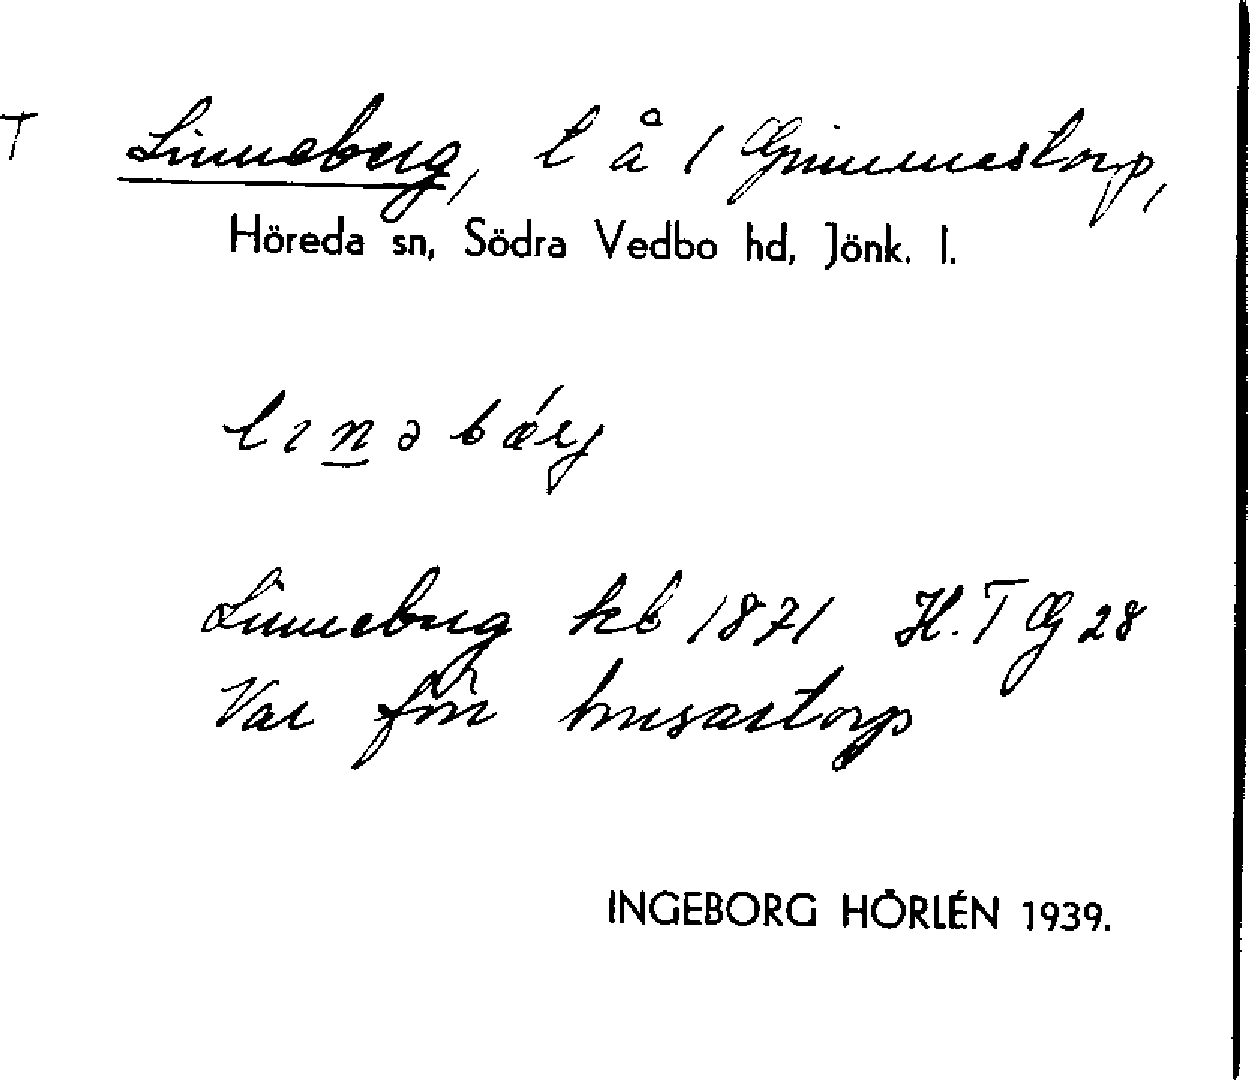 T Linneberg, t å 1 Grimmestorp,
Höreda sn, Södra Vedbo hd, Jönk. l.
lɩnəbǽrj
Linneberg kb 1871 H.T G 28
Var förr husartorp
INGEBORG HÖRLÉN 1939.